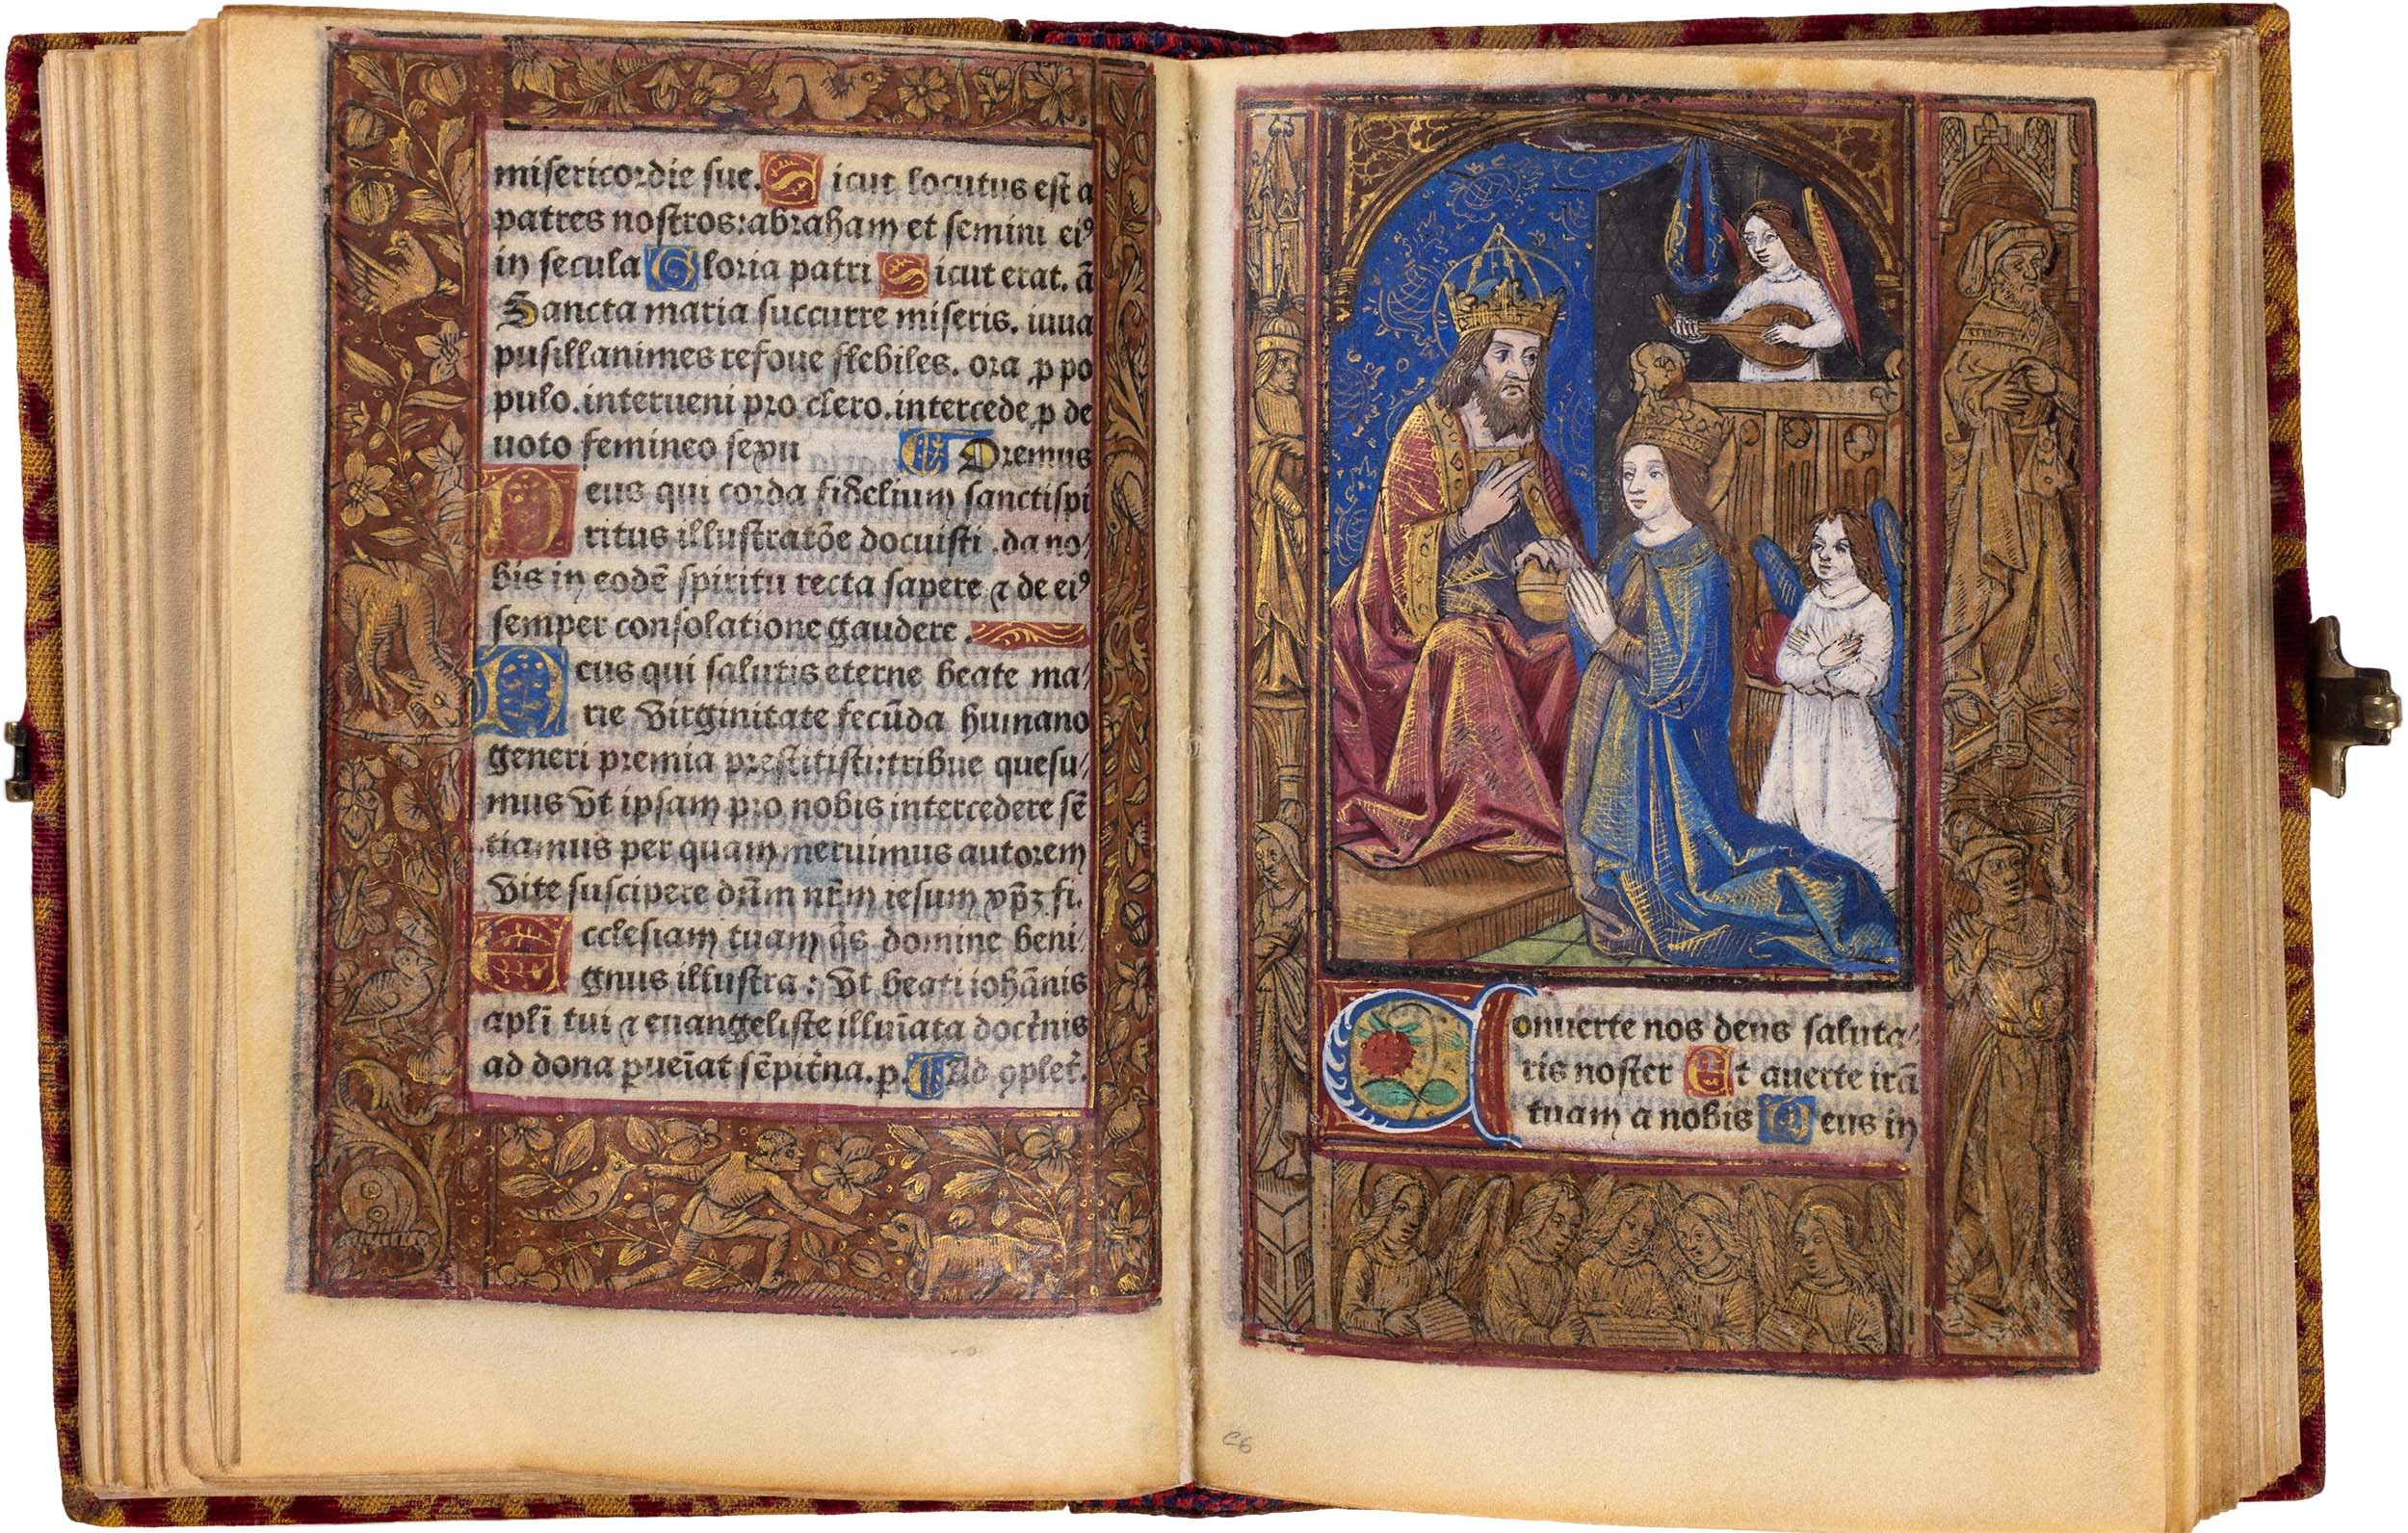 misericordie sue. Sicut locutus est a
patres nostros: abraham et semini eiꝰ
in secula Gloria patri Sicut erat. ã
Sancta maria succurre miseris. iuua
pusillanimes refoue flebiles. ora ꝓ po
pulo. interueni pro clero. intercede ꝓ de
uoto femineo sexu Oremus
Deus qui corda fidelium sanctispi
ritus illustratõe docuisti. da no/
bis in eodẽ spiritu recta sapere ⁊ de eiꝰ
semper consolatione gaudere.
Deus qui salutis eterne beate ma/
rie virginitate fecũda humano
generi premia prestitisti: tribue quesu/
mus vt ipsam pro nobis intercedere sẽ
tiamus per quam meruimus autorem
vite suscipere dñm nr̃m iesum xp̃ꝫ fi.
Ecclesiam tuam q̃s domine beni/
gnus illustra: vt beati iohãnis
apl̃i tui ⁊ euangeliste illuĩata doctr̃nis
ad dona ꝑueĩat sẽpitr̃na. p. Ad ꝯplet̃.
Conuerte nos deus saluta/
ris noster Et auerte irã
tuam a nobis Deus in
c6